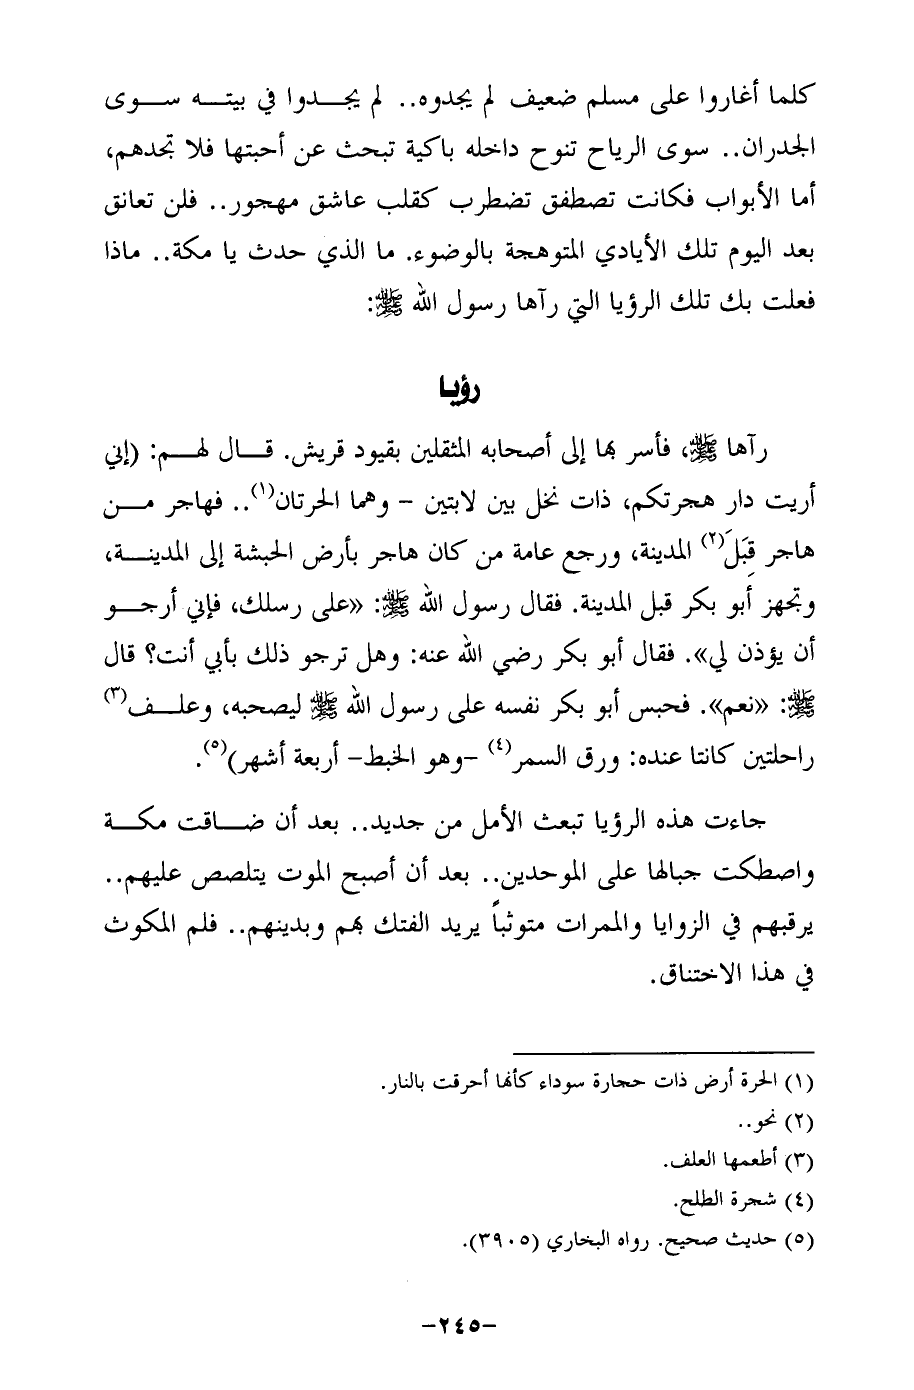 كلما أغاروا على مسلم ضعيف لم يجدوه.. لم يجـــدوا في بيتـــه ســـوى
الجدران.. سوى الرياح تنوح داخله باكية تبحث عن أحبتها فلا تجدهم،
أما الأبواب فكانت تصطفق تضطرب كقلب عاشق مهجور.. فلن تعانق
بعد اليوم تلك الأيادي المتوهجة بالوضوء. ما الذي حدث يا مكة.. ماذا
فعلت بك تلك الرؤيا التي رآها رسول الله ﷺ:
رؤيا
رآها ﷺ، فأسر بها إلى أصحابه المثقلين بقيود قريش. قـــال لهـــم: (إني
أريت دار هجرتكم، ذات نخل بين لابتين – وهما الحرتان(١).. فهاجر مـــن
هاجر قِبَلَ(٢) المدينة، ورجع عامة من كان هاجر بأرض الحبشة إلى المدينـــة،
وتجهز أبو بكر قبل المدينة. فقال رسول الله ﷺ: «على رسلك، فإني أرجـــو
أن يؤذن لي». فقال أبو بكر رضي الله عنه: وهل ترجو ذلك بأبي أنت؟ قال
ﷺ: «نعم». فحبس أبو بكر نفسه على رسول الله ﷺ ليصحبه، وعلـــف(٣)
راحلتين كانتا عنده: ورق السمر(٤) –وهو الخبط– أربعة أشهر)(٥).
جاءت هذه الرؤيا تبعث الأمل من جديد.. بعد أن ضـــاقت مكـــة
واصطكت جبالها على الموحدين.. بعد أن أصبح الموت يتلصص عليهم..
يرقبهم في الزوايا والممرات متوثباً يريد الفتك بهم وبدينهم.. فلم المكوث
في هذا الاختناق.
(١) الحرة أرض ذات حجارة سوداء كأنها أحرقت بالنار.
(٢) نحو..
(٣) أطعمها العلف.
(٤) شجرة الطلح.
(٥) حديث صحيح. رواه البخاري (٣٩٠٥).
–٢٤٥–